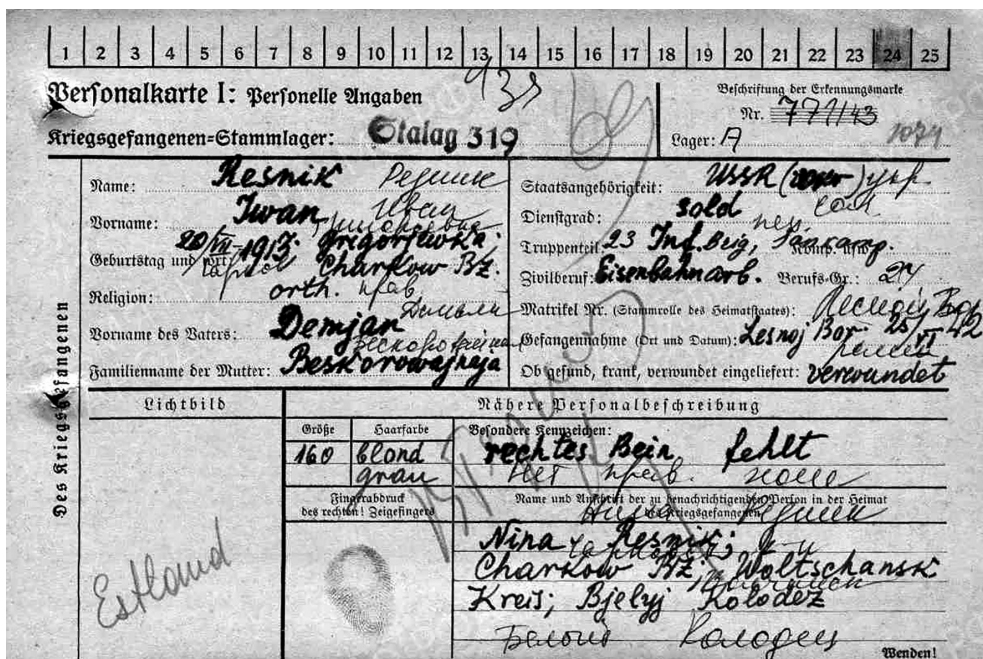 1 2 3 4 5 6 7 8 9 10 11 12 13 14 15 16 17 18 19 20 21 22 23 24 25
Personalkarte I: Personelle Angaben
Kriegsgefangenen-Stammlager: Stalag 319
Beschriftung der Erkennungsmarke
Nr. 771/43
Lager: A
Des Kriegsgefangenen
Name: Resnik Резник
Vorname: Iwan, Иван
Geburtstag und 20/VII-1913. Grigorjewka;
Charkow Bz.
Religion: orth. прав.
Vorname des Vaters: Demjan Демьян
Familienname der Mutter: Beskorowajnaja
Staatsangehörigkeit: USSR укр
Dienstgrad: sold
Truppenteil: 23 Inf. Komp. usw.
Zivilberuf: Eisenbahnarb. Berufs-Gr.: 24
Matrikel Nr. (Stammrolle des Heimatstaates): Лесной Бор
Gefangennahme (Ort und Datum): Lesnoj Bor. 25/VI 42
Ob gesund, krank, verwundet eingeliefert: verwundet
Lichtbild
Estland
Nähere Personalbeschreibung
Größe Haarfarbe Besondere Kennzeichen:
160 blond rechtes Bein fehlt
grau нет прав. ноги
Fingerabdruck
des rechten! Zeigefingers
Name und Anschrift der zu benachrichtigenden Person in der Heimat
des Kriegsgefangenen
Нина Резник
Nina Resnik;
Charkow Bz, Woltschansk
Kreis; Bjelyj Kolodez
Белый Колодец
Wenden!